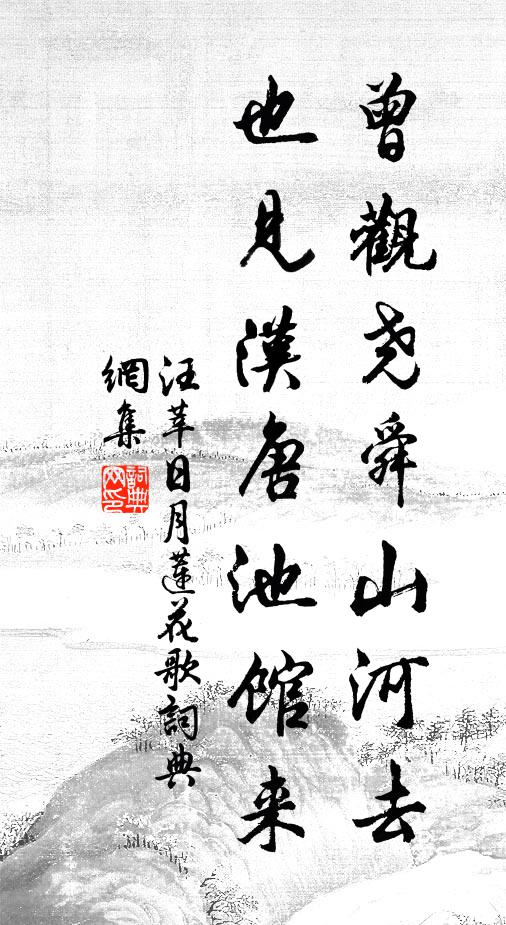 曾觀尧舜山河去
也見漢唐池馆来
汪莘日月蓮花歌詞典
網集
詞典
网印